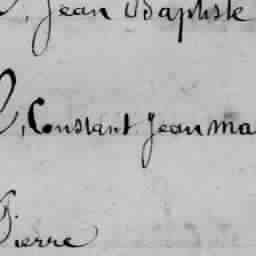 , Jean Baptiste
, Constant Jean ma
Pierre